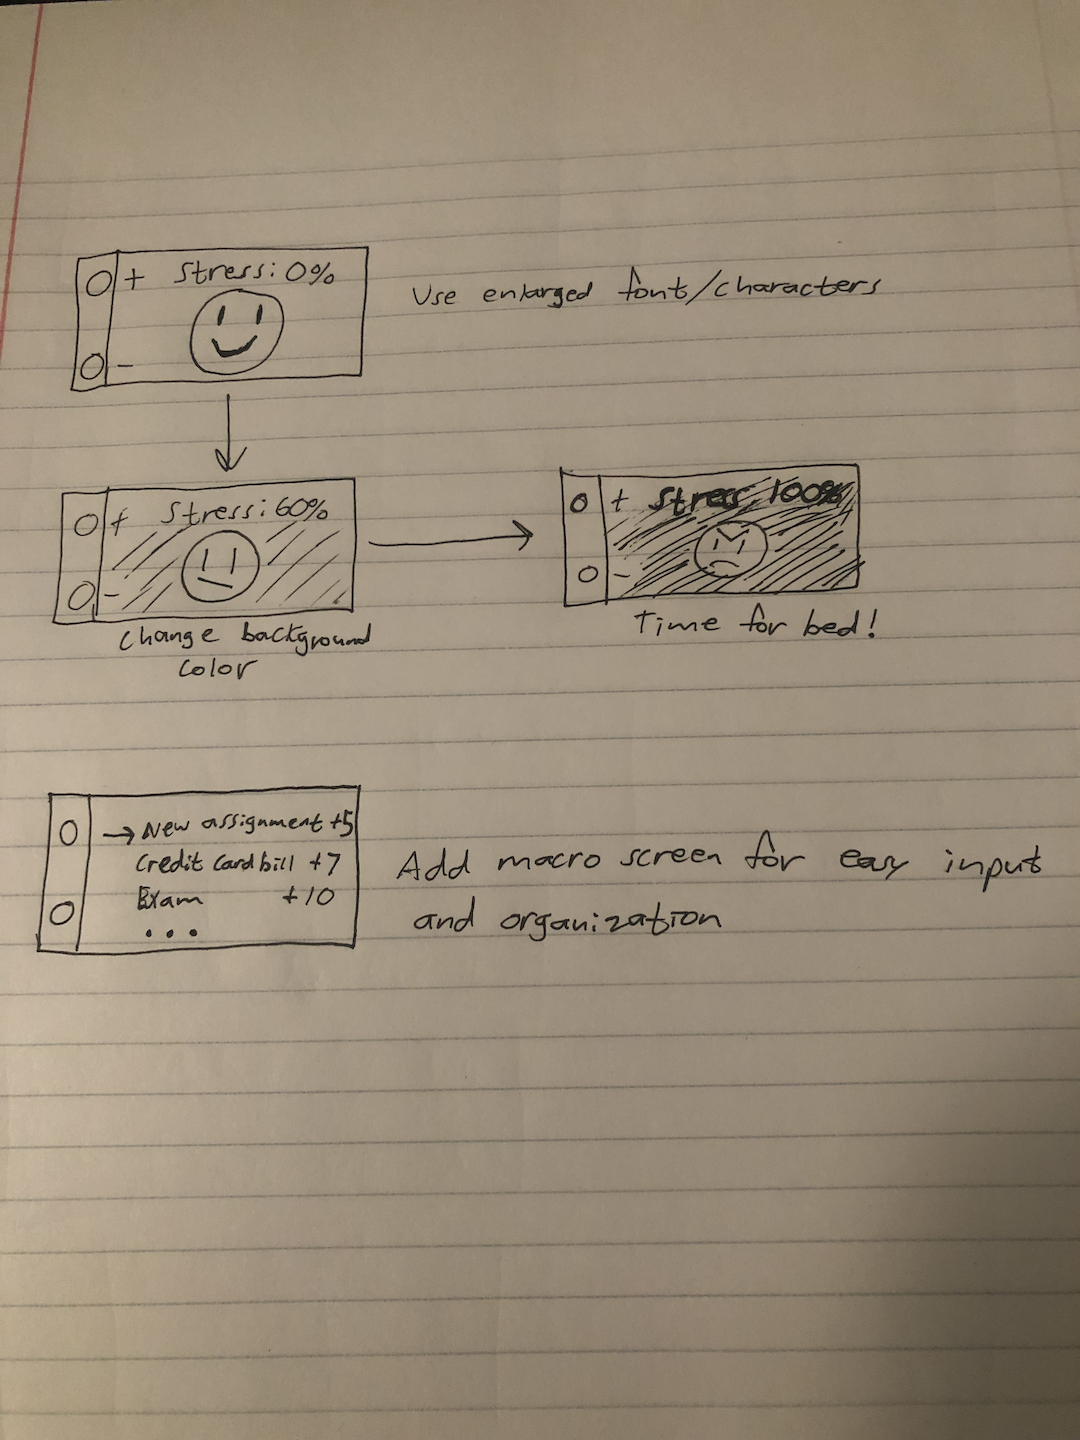 + Stress: 0%
-
Use enlarged font/characters
+ Stress: 60%
-
Change background
color
+ Stress 100%
-
Time for bed!
→ New assignment +5
Credit card bill +7
Exam +10
...
Add macro screen for easy input
and organization